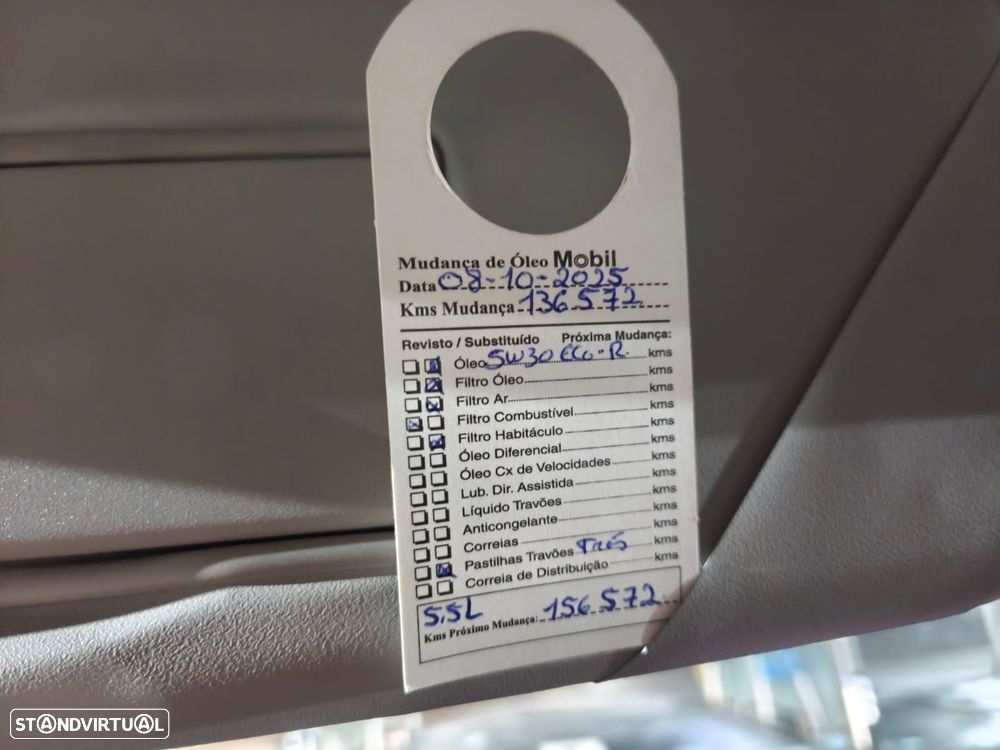 Mudança de Óleo Mobil
Data 08-10-2025
Kms Mudança 136.572
Revisto / Substituído Próxima Mudança:
Óleo 5W30 ECO-R. kms
Filtro Óleo kms
Filtro Ar kms
Filtro Combustível kms
Filtro Habitáculo kms
Óleo Diferencial kms
Óleo Cx de Velocidades kms
Lub. Dir. Assistida kms
Líquido Travões kms
Anticongelante kms
Correias kms
Pastilhas Travões Trás kms
Correia de Distribuição kms
5,5L
Kms Próximo Mudança: 156.572
STANDVIRTUAL